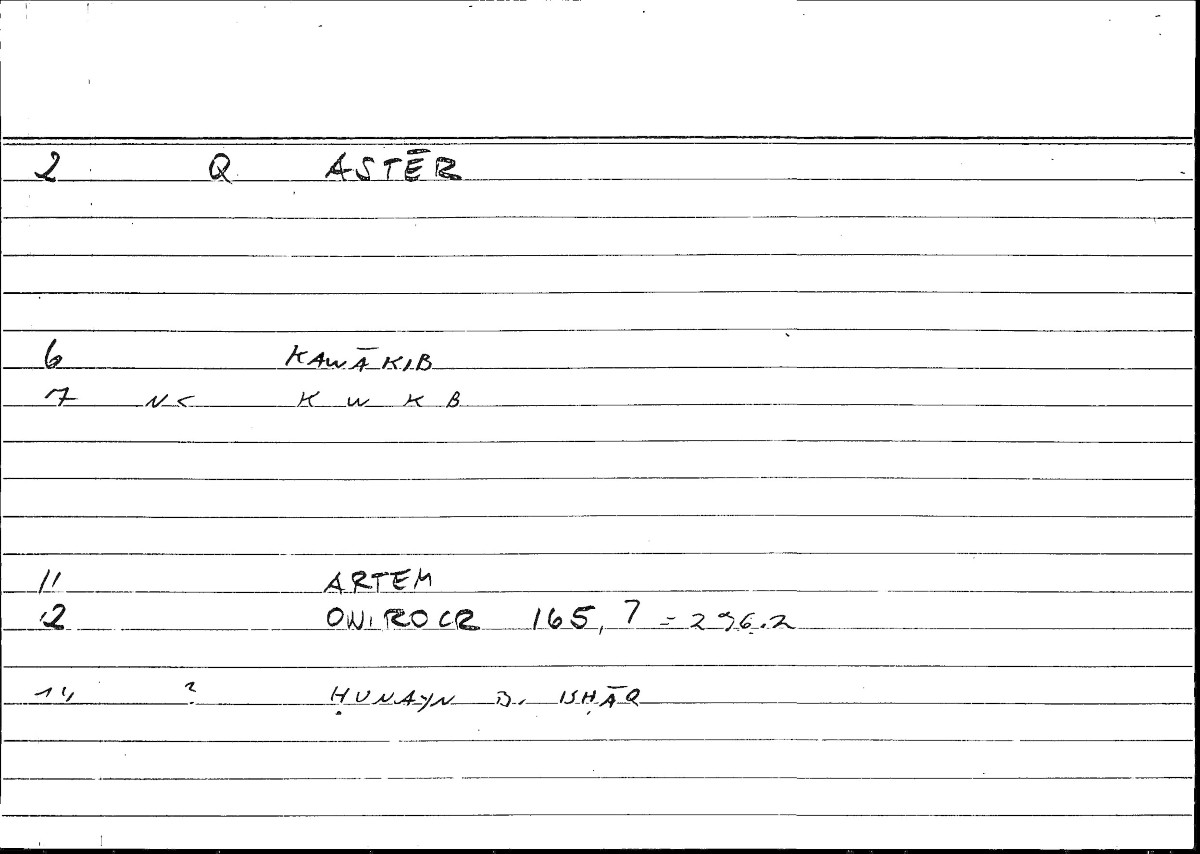 2 Q ASTĒR
6 KAWĀKIB
7 NC K W K B
11 ARTEM
12 ONIROCR 165,7 = 296.2
14 ? ḤUNAYN B. ISḤĀQ